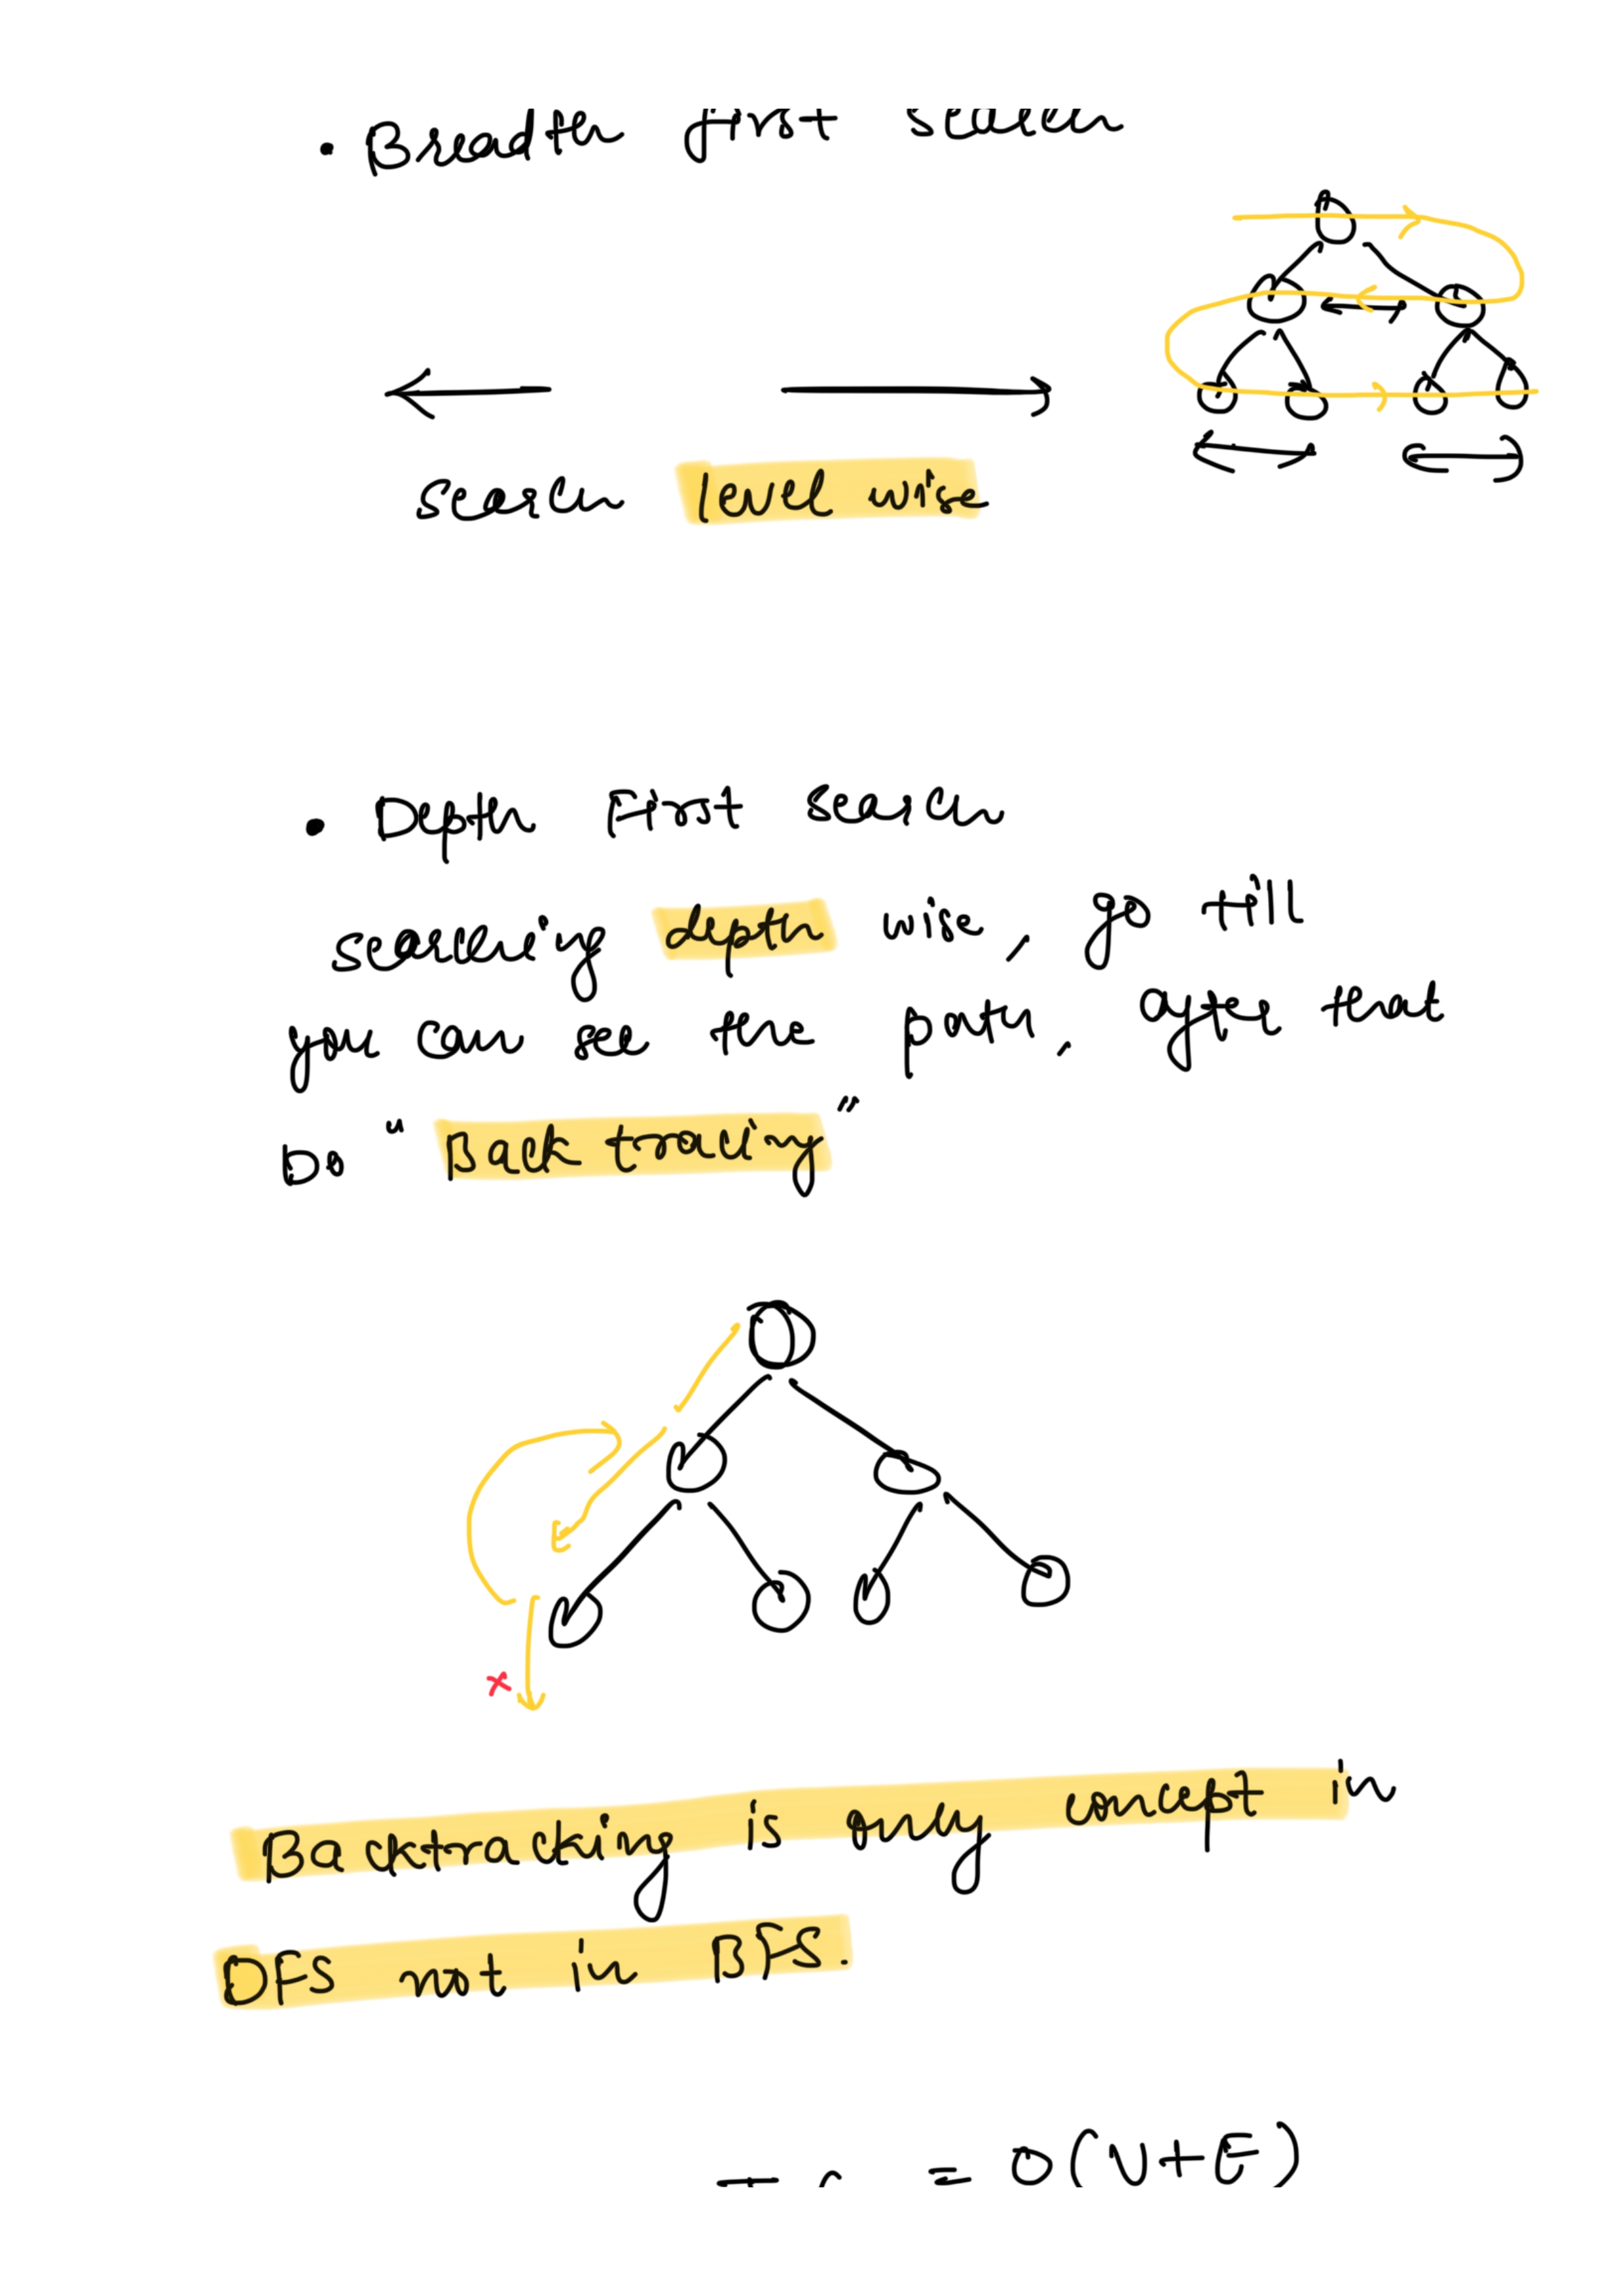 • Breadth first search
search level wise
• Depth First search
searching depth wise, go till
you can see the path, after that
Do "Back tracing"
Backtracking is only concept in
DFS not in BFS.
= O(V+E)